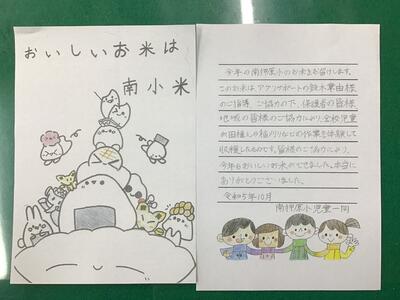 おいしいお米は
南小米
今年の南押原小のお米をお届けします。
このお米は、アグリサポートの鈴木業由様
のご指導、ご協力の下、保護者の皆様
地域の皆様のご協力により、全校児童
が田植えや稲刈りなどの作業を体験して
収穫したものです。皆様のご協力により、
今年もおいしいお米ができました。本当に
ありがとうございました。
令和5年10月
南押原小児童一同